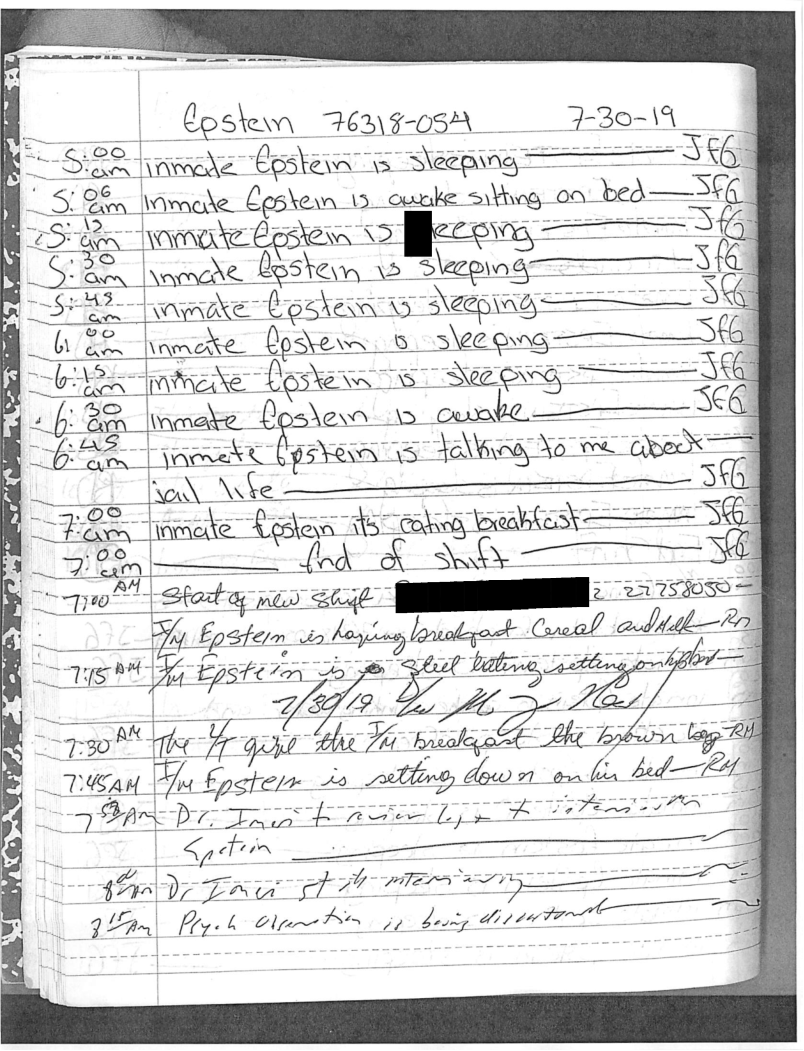 Epstein 76318-054 7-30-19
5:00 am inmate Epstein is sleeping JFG
5:06 am inmate Epstein is awake sitting on bed JFG
5:15 am inmate Epstein is eeping JFG
5:30 am inmate Epstein is sleeping JFG
5:45 am inmate Epstein is sleeping JFG
6:00 am inmate Epstein is sleeping JFG
6:15 am inmate Epstein is sleeping JFG
6:30 am inmate Epstein is awake JFG
6:45 am inmate Epstein is talking to me about
jail life JFG
7:00 am inmate Epstein its eating breakfast JFG
7:00 am End of shift JFG
7:00 AM Start of new shift 22758050
I/M Epstein is having breakfast Cereal and Milk
7:15 AM I/M Epstein is steel eating setting on his bed
7/30/19
7:30 AM The give the I/M breakfast the brown bag RM
7:45 AM I/M Epstein is setting down on his bed RM
AM Dr. to review
Epstein
8 Am Dr interviewing
8 15 Am Psych observation is being